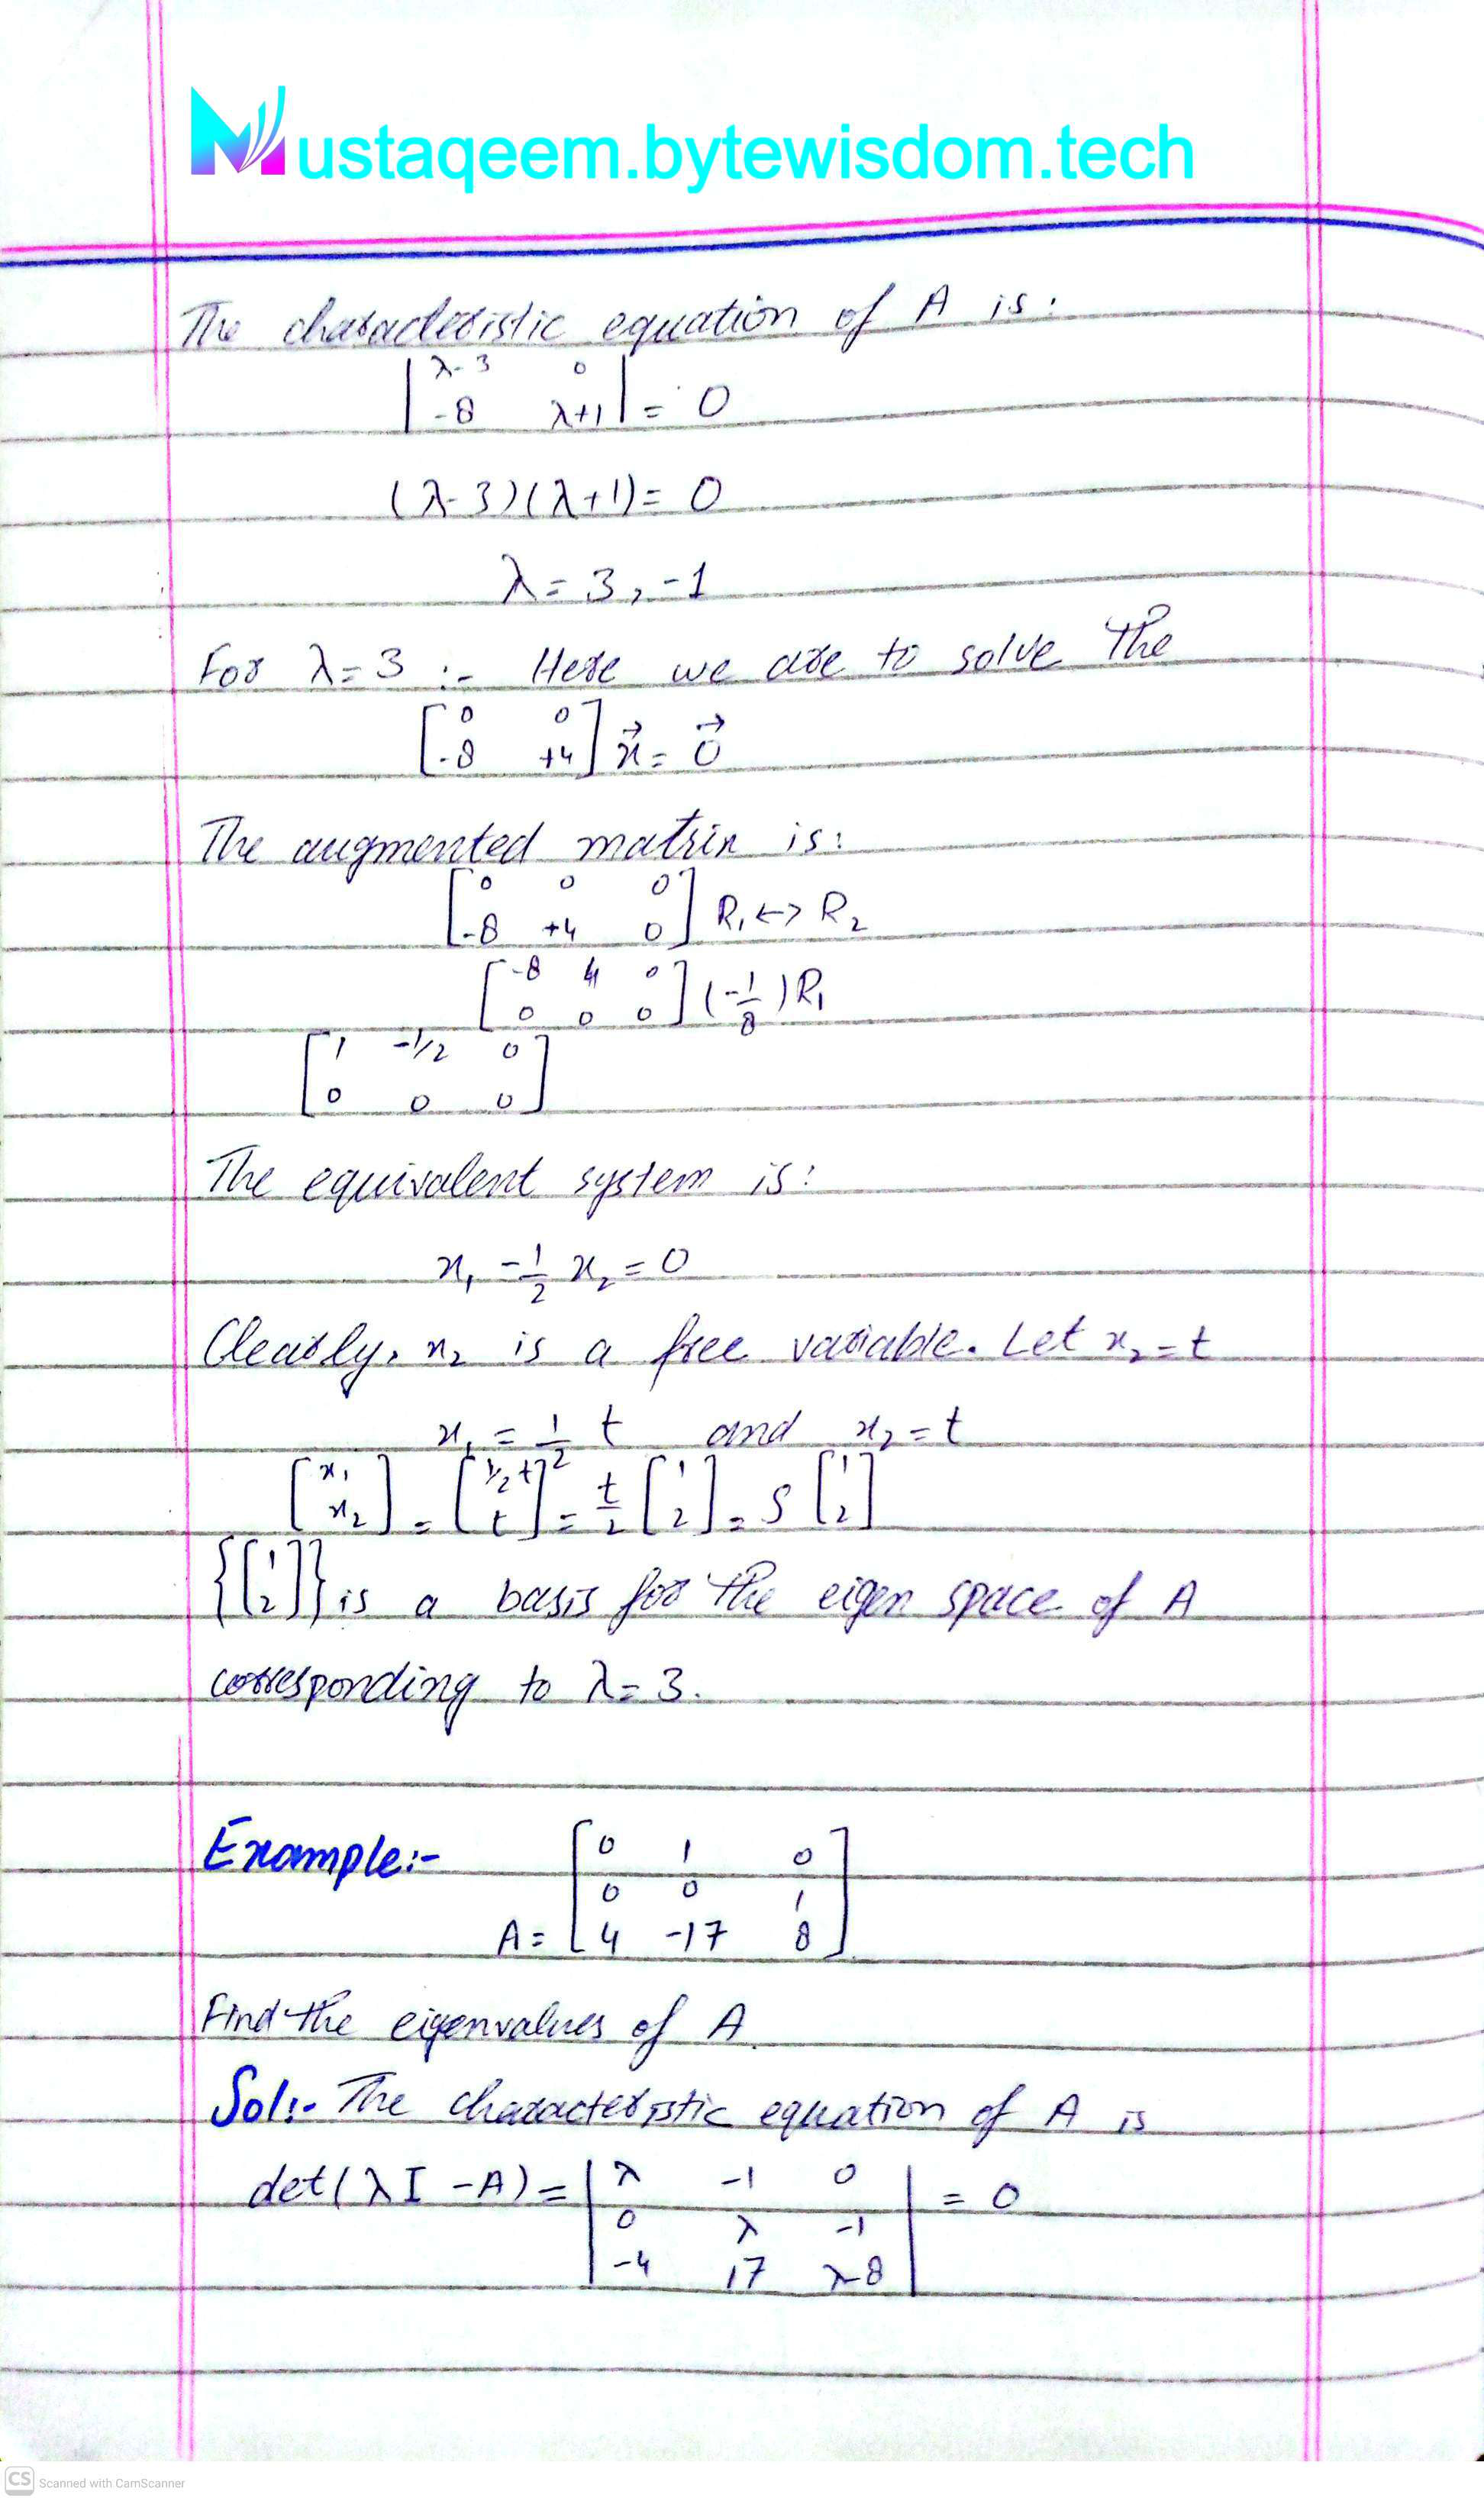 Mustaqeem.bytewisdom.tech
The characteristic equation of A is:
| λ-3 0 |
| -8 λ+1 | = 0
(λ-3)(λ+1) = 0
λ = 3, -1
For λ = 3 :- Here we are to solve the
[ 0 0 ]
[ -8 +4 ] x⃗ = 0⃗
The augmented matrix is:
[ 0 0 0 ]
[ -8 +4 0 ] R₁ ↔ R₂
[ -8 4 0 ]
[ 0 0 0 ] (-1/8) R₁
[ 1 -1/2 0 ]
[ 0 0 0 ]
The equivalent system is:
x₁ - 1/2 x₂ = 0
Clearly, x₂ is a free variable. Let x₂ = t
x₁ = 1/2 t and x₂ = t
[ x₁ ; x₂ ] = [ 1/2 t ; t ] = t/2 [ 1 ; 2 ] = s [ 1 ; 2 ]
{[ 1 ; 2 ]} is a basis for the eigen space of A
corresponding to λ = 3.
Example:-
A = [ 0 1 0 ]
[ 0 0 1 ]
[ 4 -17 8 ]
Find the eigenvalues of A.
Sol:- The characteristic equation of A is
det(λI - A) = | λ -1 0 | = 0
| 0 λ -1 |
| -4 17 λ-8 |
CS Scanned with CamScanner